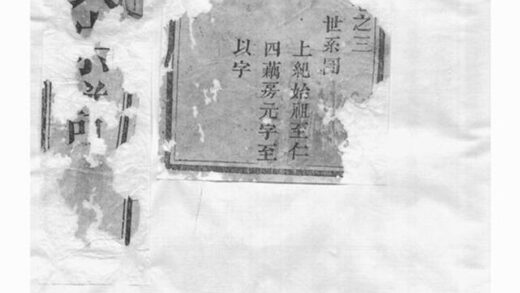 之三
世系圖
上紀始祖至仁
四藕房元字至
以字